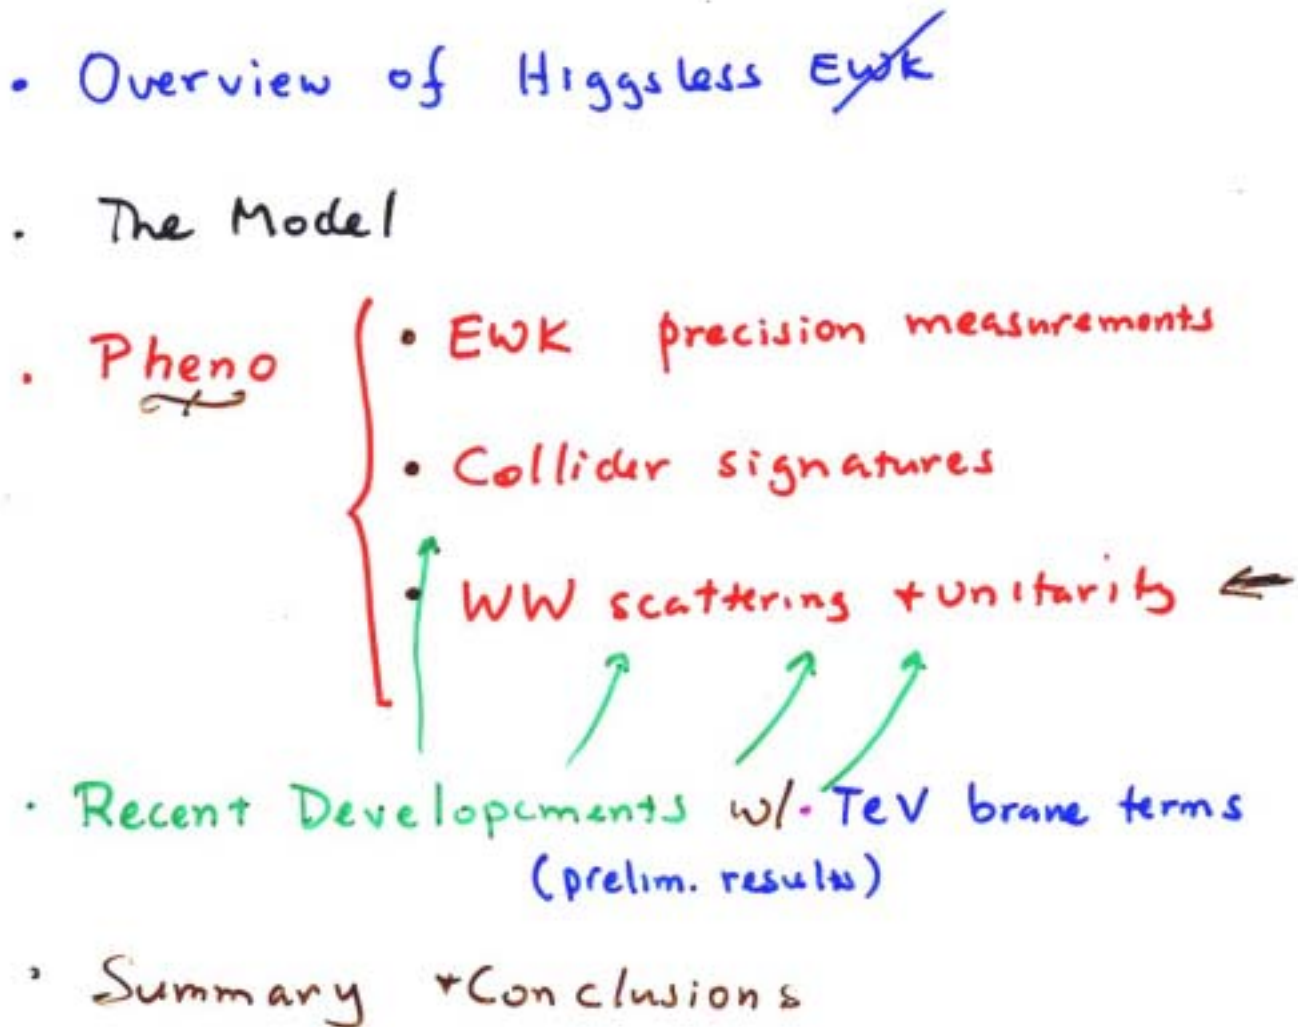 • Overview of Higgsless EWK
• The Model
• Pheno
• EWK precision measurements
• Collider signatures
• WW scattering + unitarity ←
• Recent Developements w/ TeV brane terms
(prelim. results)
• Summary + Conclusions